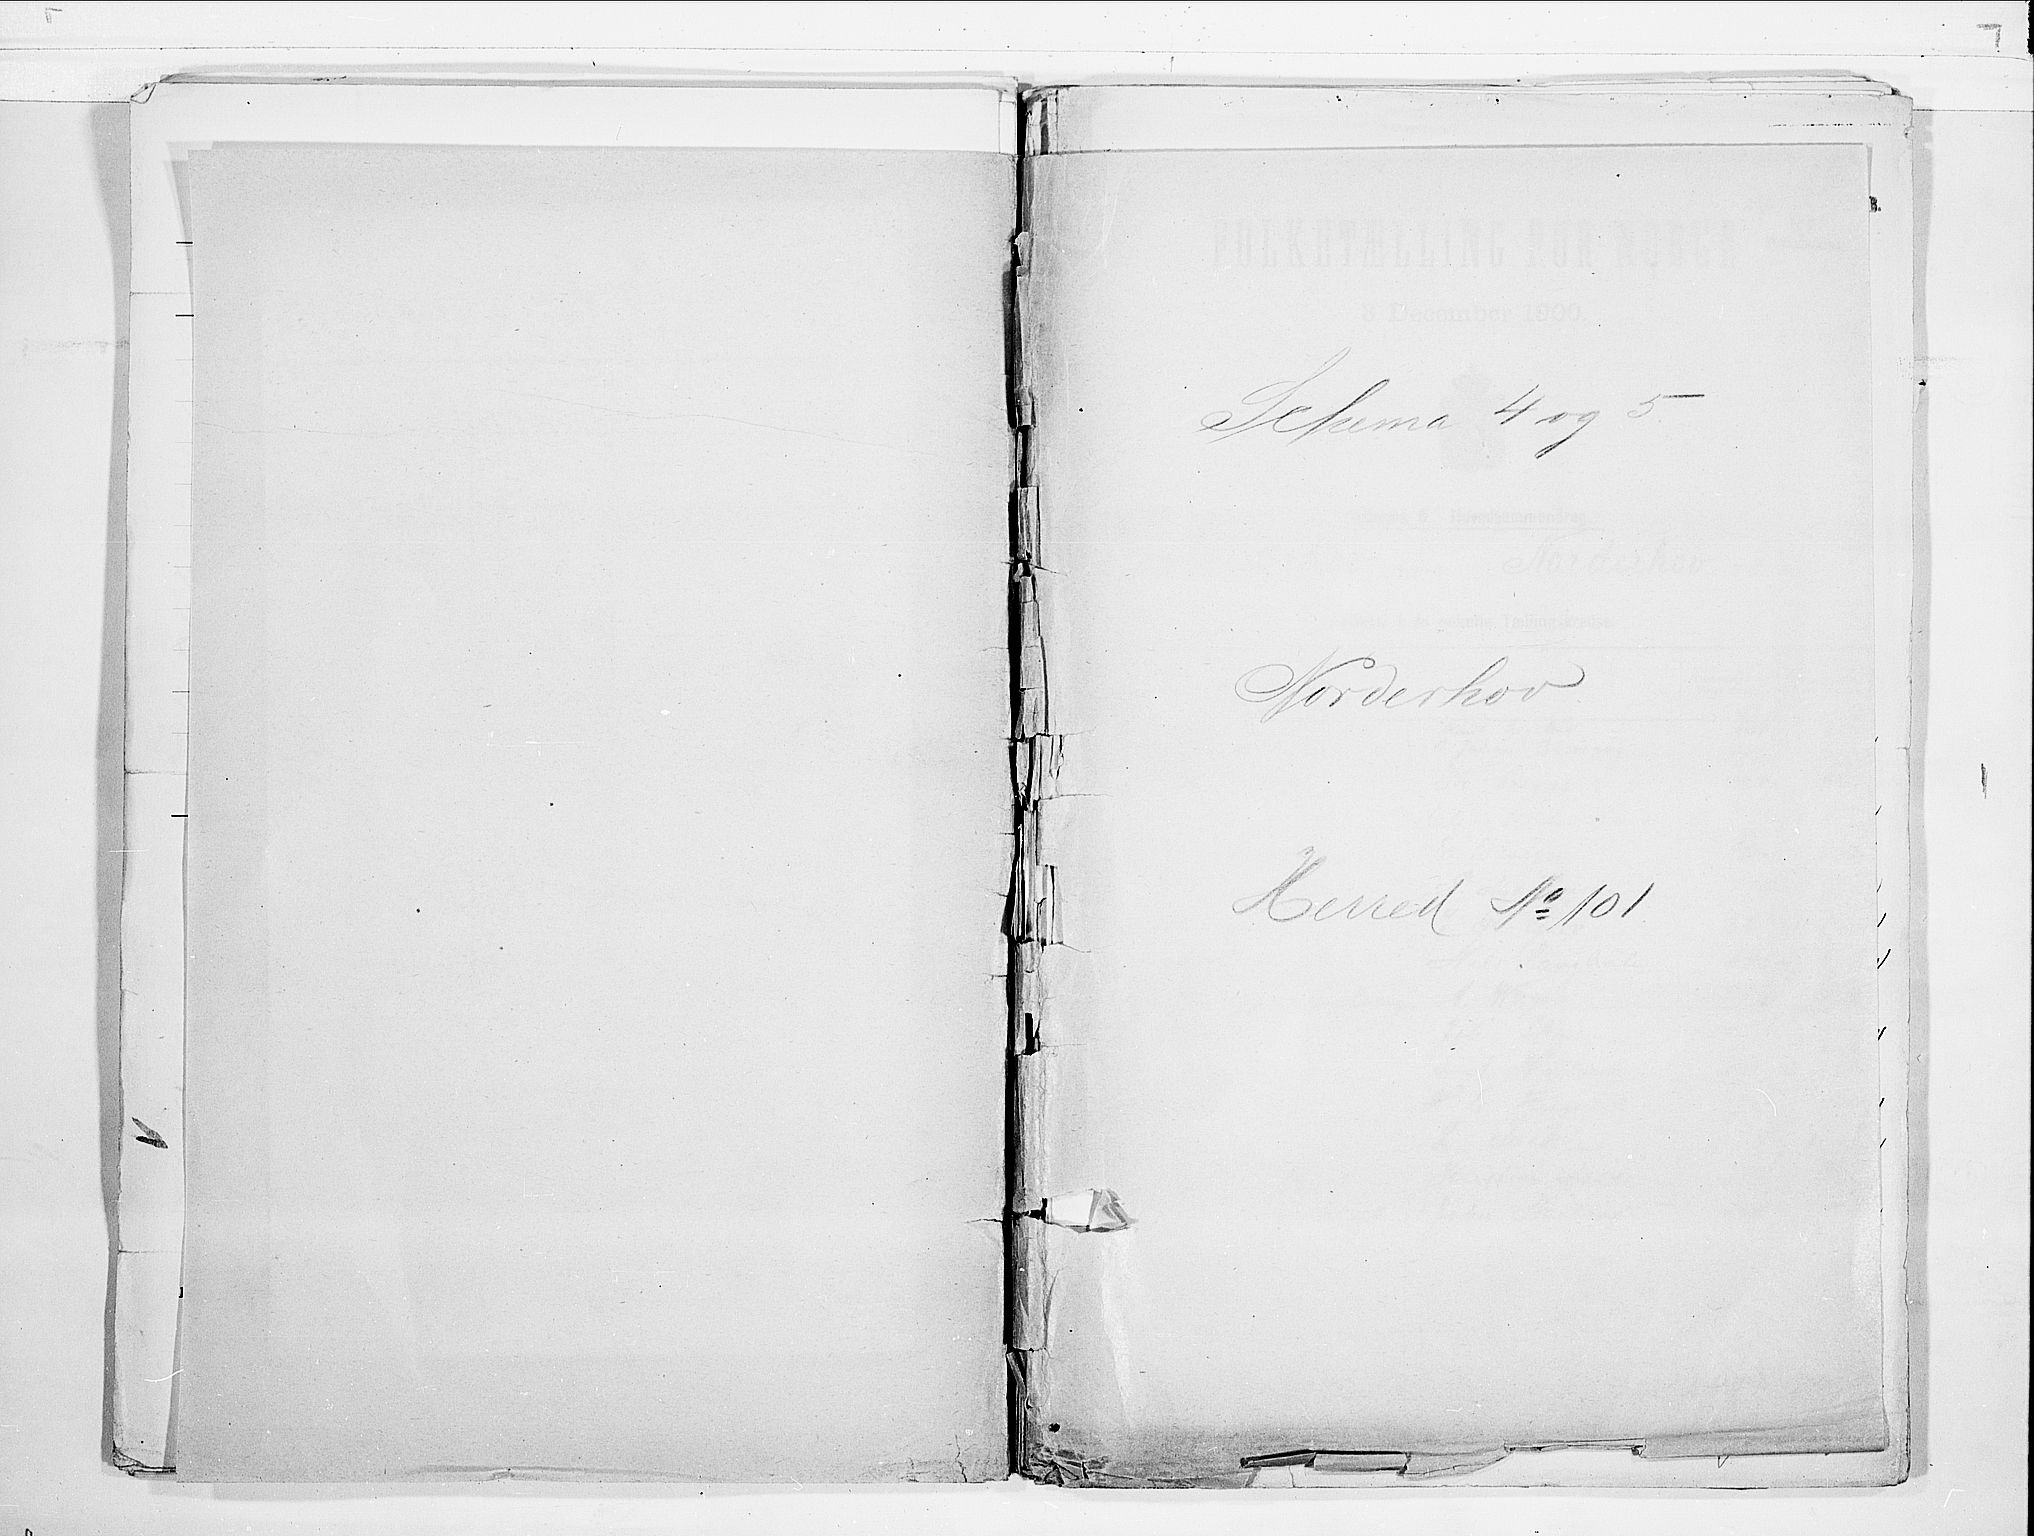 FOLKETÆLLING FOR NORGE
3 December 1900.
Schema 4 og 5
Norderhov
Norderhov
Herred No 101